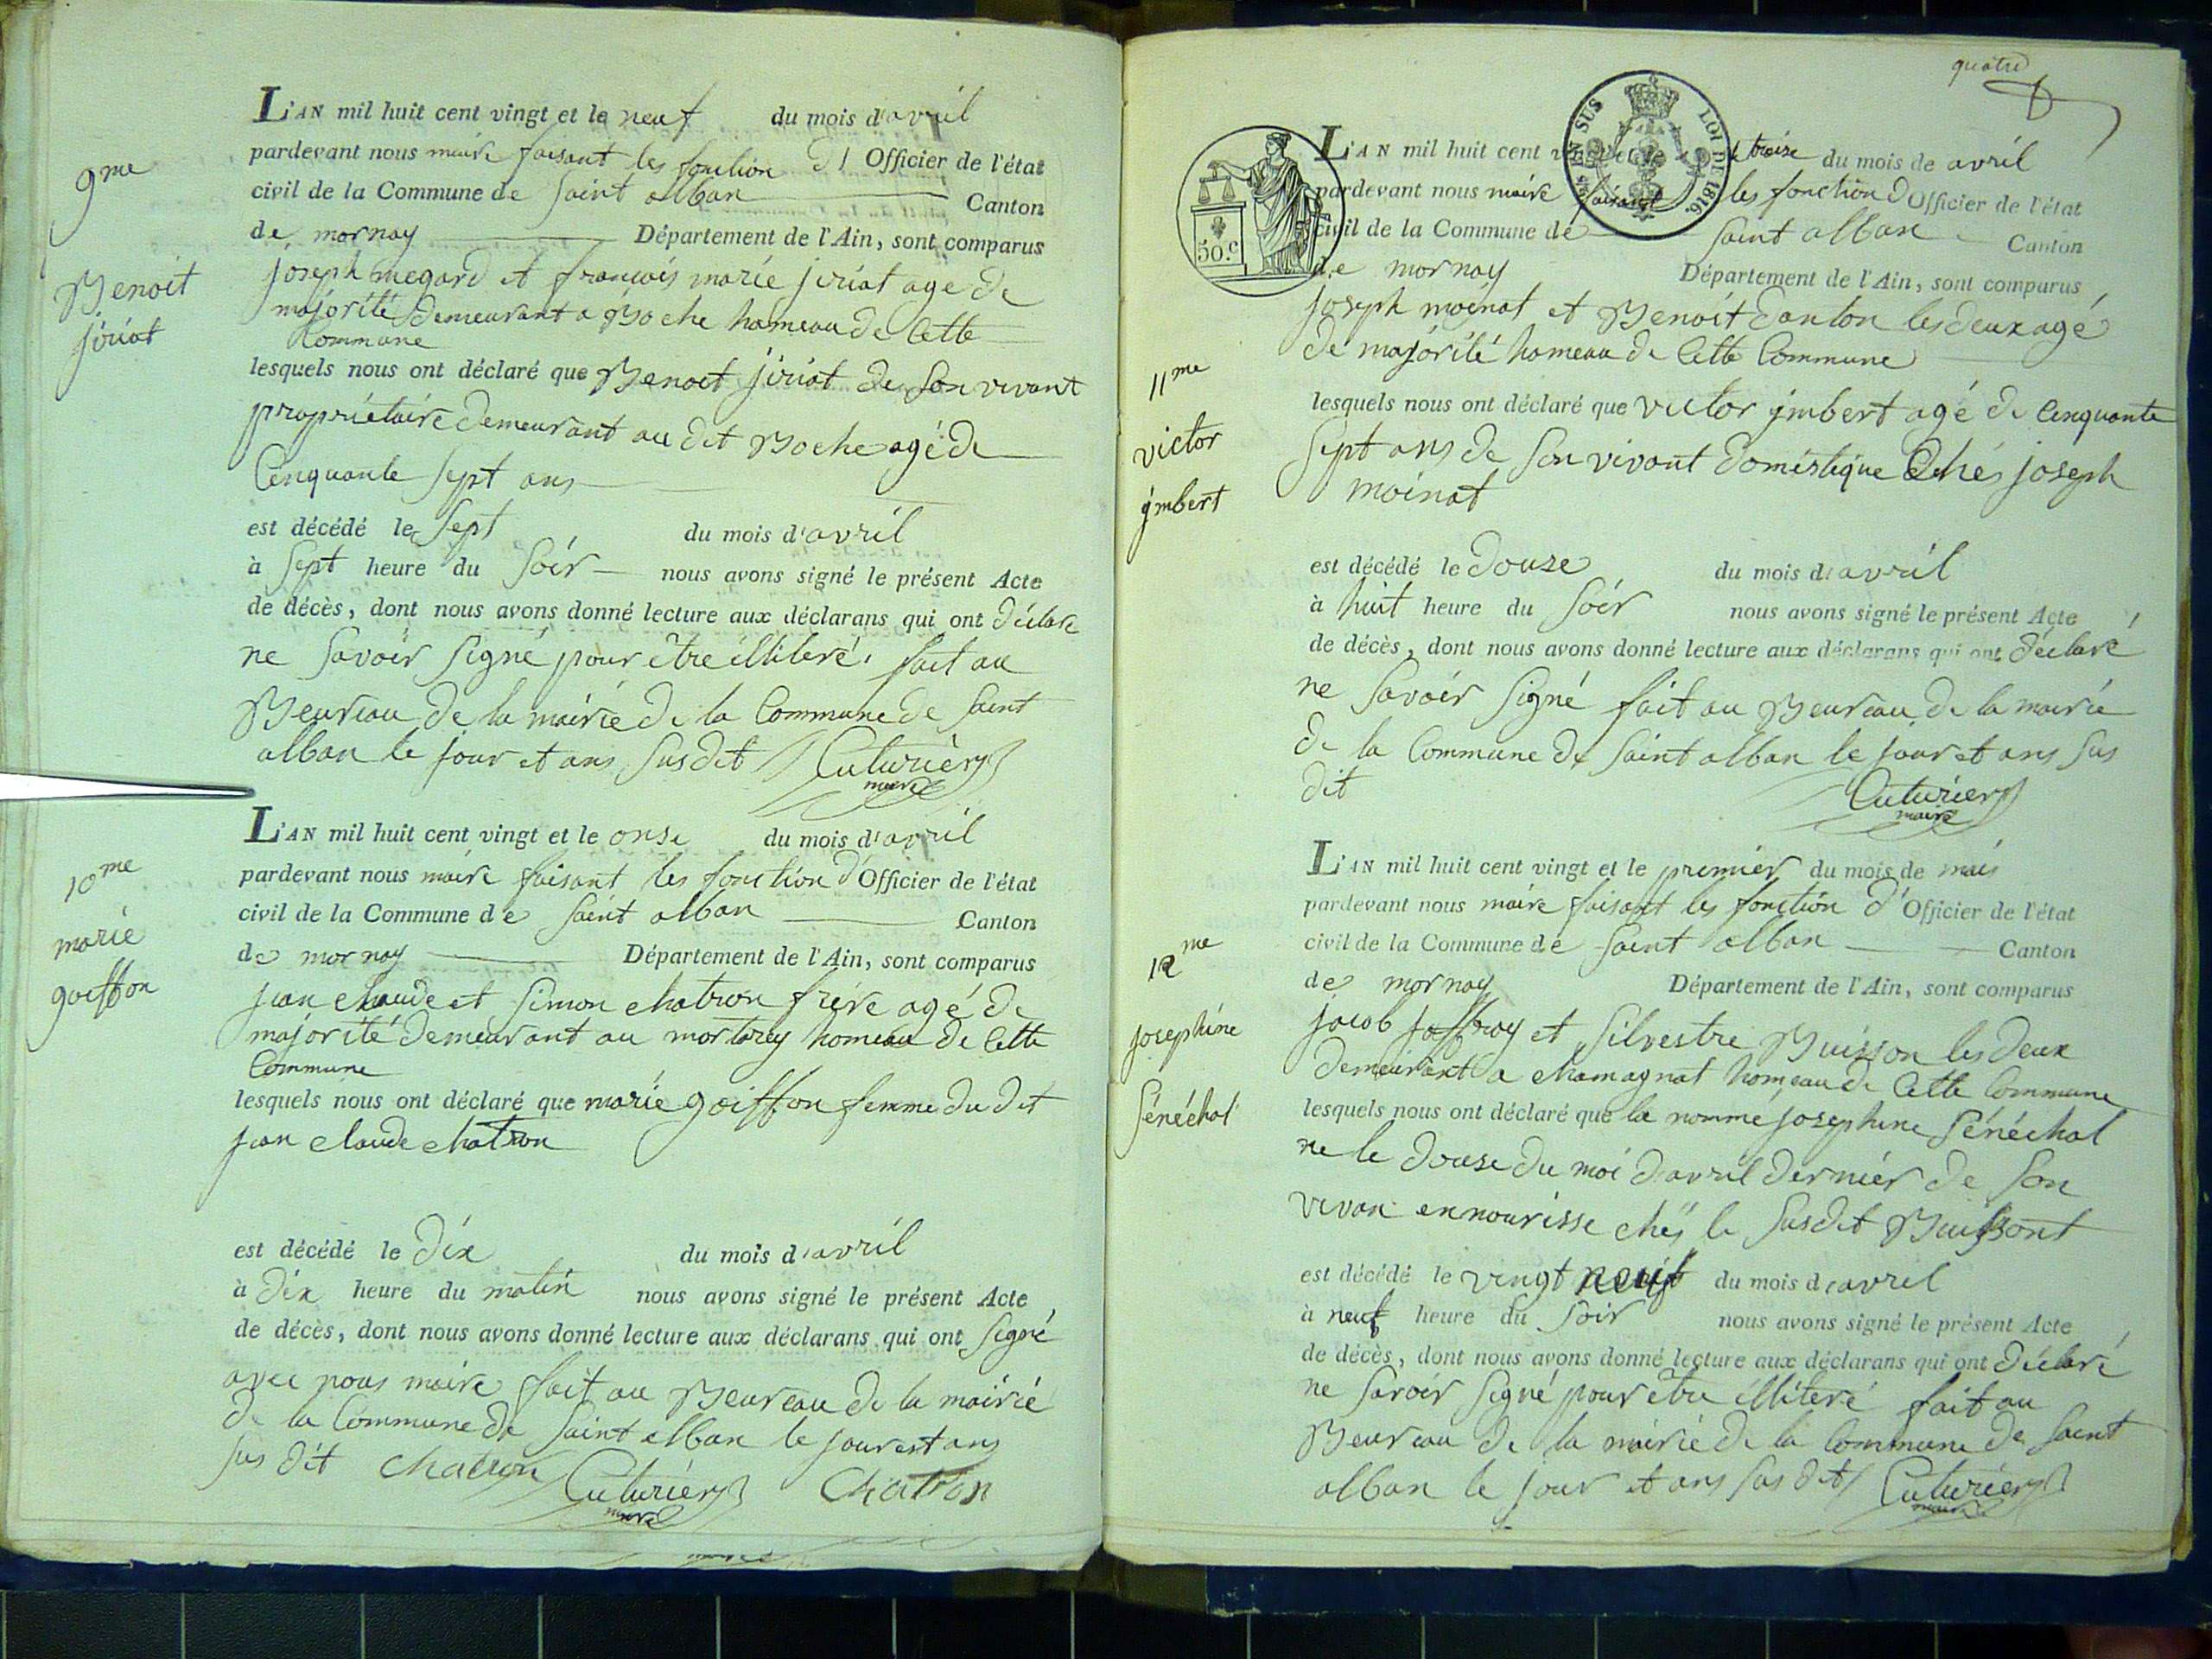 9me
Benoit
jiriat
L'AN mil huit cent vingt et le neuf du mois d'avril
pardevant nous maire faisant les fonction d' Officier de l'état
civil de la Commune de Saint alban Canton
de mornay Département de l'Ain, sont comparus
joseph megard et francois marie jiriat age de
majorité demeurant a Boche hameau de Cette
Commune
lesquels nous ont déclaré que Benoit jiriat de Son vivant
propriétaire demeurant au dit Boche agé de
Cinquante Sept ans
est décédé le Sept du mois d'avril
à Sept heure du Soir nous avons signé le présent Acte
de décès, dont nous avons donné lecture aux déclarans qui ont déclare
ne Savoir Signé pour être illiteré. fait au
Beureau de la mairie de la Commune de Saint
alban le jour et ans Susdit Cuturier
maire
10me
marie
goiffon
L'AN mil huit cent vingt et le onse du mois d'avril
pardevant nous maire faisant les fonction d'Officier de l'état
civil de la Commune de Saint alban Canton
de mornay Département de l'Ain, sont comparus
jean claude et Simon chatron frère agé de
majorité demeurant au mortarey homeau de Cette
Commune
lesquels nous ont déclaré que marie goiffon femme du dit
jean claude chatron
est décédé le dix du mois d'avril
à dix heure du matin nous avons signé le présent Acte
de décès, dont nous avons donné lecture aux déclarans qui ont Signé
avec nous maire fait au Beureau de la mairie
de la Commune de Saint alban le jour et ans
sus dit chatron Cuturier Chatron
maire
quatre
50.c
EN SUS
LOI DE 1816.
L'AN mil huit cent treize du mois de avril
pardevant nous maire faisant les fonction d Officier de l'état
civil de la Commune de Saint alban Canton
de mornay Département de l'Ain, sont comparus
joseph moinat et Benoit danton les deux agé
de majorité hameau de Cette Commune
11me
victor
jmbert
lesquels nous ont déclaré que victor jmbert agé de Cinquante
Sept ans de Son vivant doméstique Chés joseph
moinat
est décédé le Douze du mois d'avril
à huit heure du Soir nous avons signé le présent Acte
de décès, dont nous avons donné lecture aux déclarans qui ont déclaré
ne Savoir Signé fait au Beureau de la mairie
de la Commune de Saint alban le jour et ans Sus
dit Cuturier
maire
12me
josephine
Sénéchal
L'AN mil huit cent vingt et le premier du mois de mai
pardevant nous maire faisant les fonction d'Officier de l'état
civil de la Commune de Saint alban Canton
de mornay Département de l'Ain, sont comparus
jacob joffroy et Silvestre Buisson les deux
demeurant a chamagnat homeau de Cette Commune
lesquels nous ont déclaré que la nommé josephine Sénéchal
ne le douse du moi d'avril dernier de Son
vivan en nourisse chés le Susdit Buissont
est décédé le vingt neuf du mois d'avril
à neuf heure du Soir nous avons signé le présent Acte
de décès, dont nous avons donné lecture aux déclarans qui ont déclaré
ne Savoir Signé pour être illiteré fait au
Beureau de la mairie de la Commune de Saint
alban le jour et ans sus dit Cuturier
maire